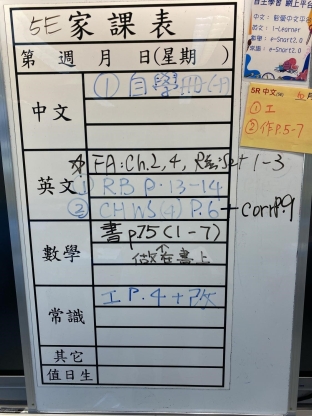 5E 家課表
第 週 月 日(星期 )
中文
① 自學
英文
FA: Ch.2, 4,
RB P.13-14
② CH WS (4) P.6 + corr P.9
數學
書 p75 (1-7)
做在書上
常識
工 P.4 + 改
其它
值日生
自主學習 網上平台
英文: i-Learner
數學: e-Smart2.0
常識: e-Smart2.0
5R 中文
① 工
② 作P.5-7